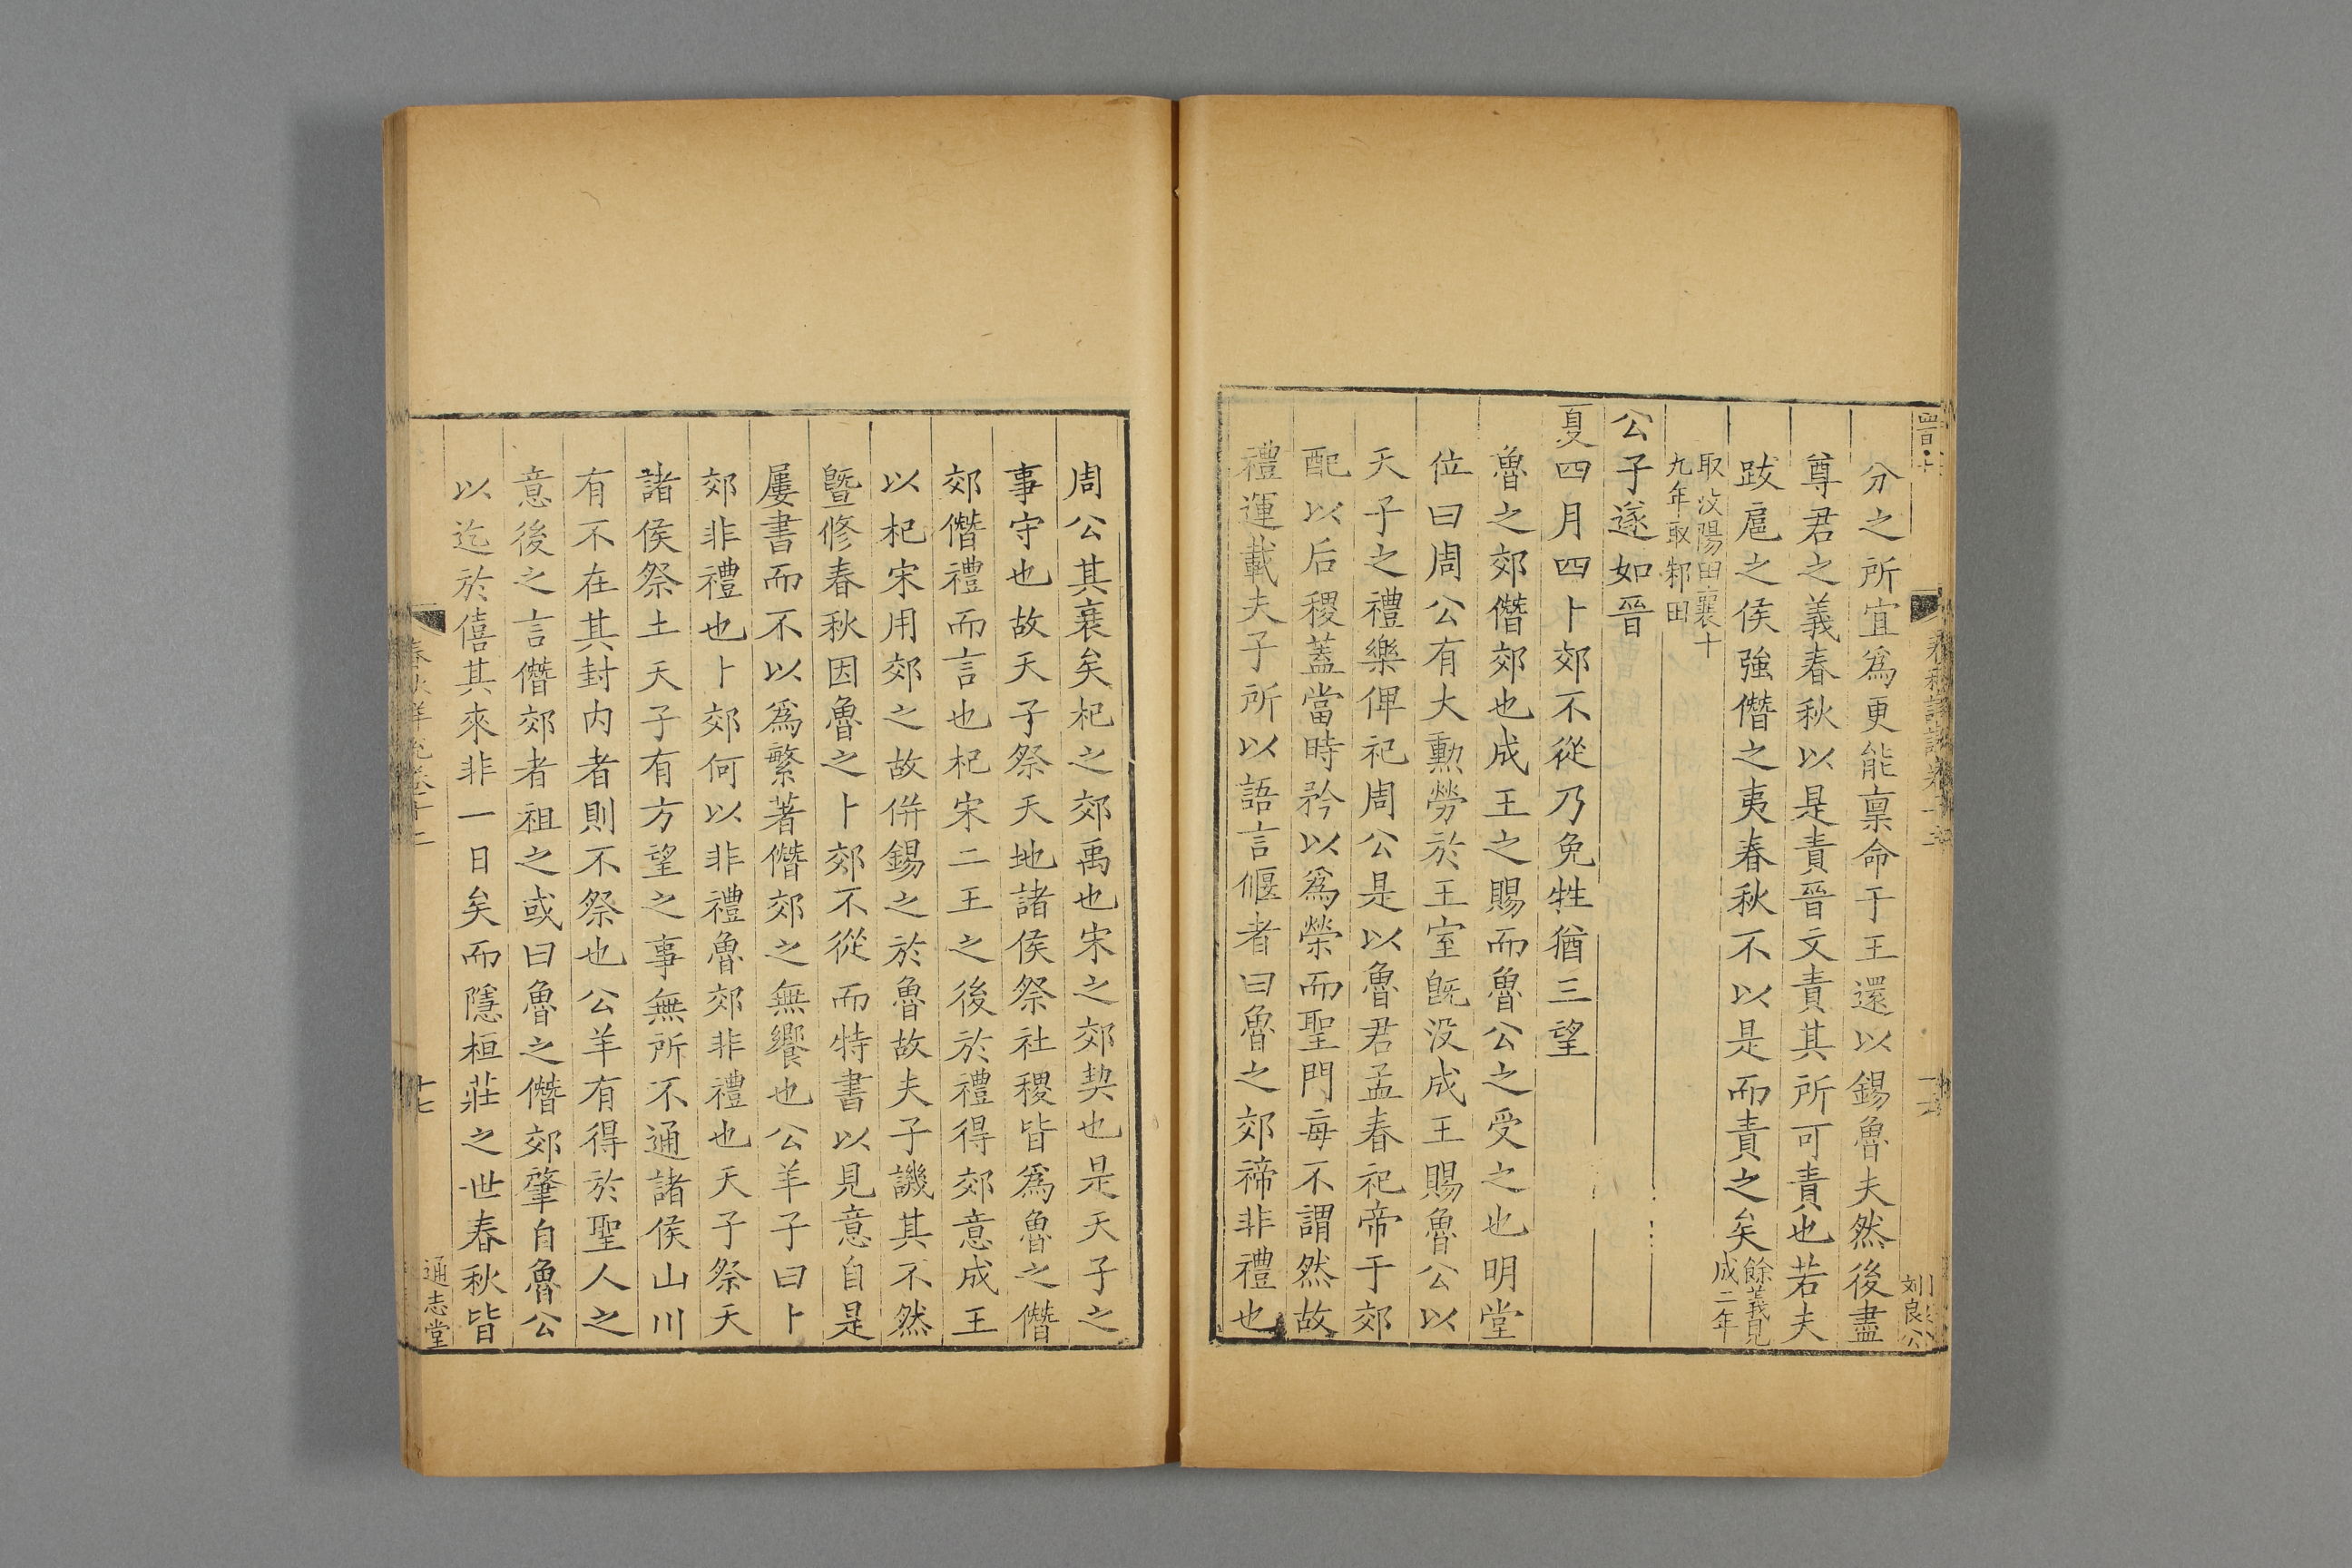 分之所宜爲更能稟命于王還以錫魯夫然後盡
尊君之義春秋以是責晉文責其所可責也若夫
跋扈之侯強僭之夷春秋不以是而責之矣餘義見成二年
取汶陽田襄十
九年取邾田
公子遂如晉
夏四月四卜郊不從乃免牲猶三望
魯之郊僭郊也成王之賜而魯公之受之也明堂
位曰周公有大勲勞於王室旣没成王賜魯公以
天子之禮樂俾祀周公是以魯君孟春祀帝于郊
配以后稷蓋當時矜以爲榮而聖門每不謂然故
禮運載夫子所以語言偃者曰魯之郊禘非禮也
周公其衰矣杞之郊禹也宋之郊契也是天子之
事守也故天子祭天地諸侯祭社稷皆爲魯之僭
郊僭禮而言也杞宋二王之後於禮得郊意成王
以杞宋用郊之故併錫之於魯故夫子譏其不然
曁修春秋因魯之卜郊不從而特書以見意自是
屢書而不以爲繁著僭郊之無饗也公羊子曰卜
郊非禮也卜郊何以非禮魯郊非禮也天子祭天
諸侯祭土天子有方望之事無所不通諸侯山川
有不在其封内者則不祭也公羊有得於聖人之
意後之言僭郊者祖之或曰魯之僭郊肇自魯公
以迄於僖其來非一日矣而隱桓莊之世春秋皆
十七
通志堂